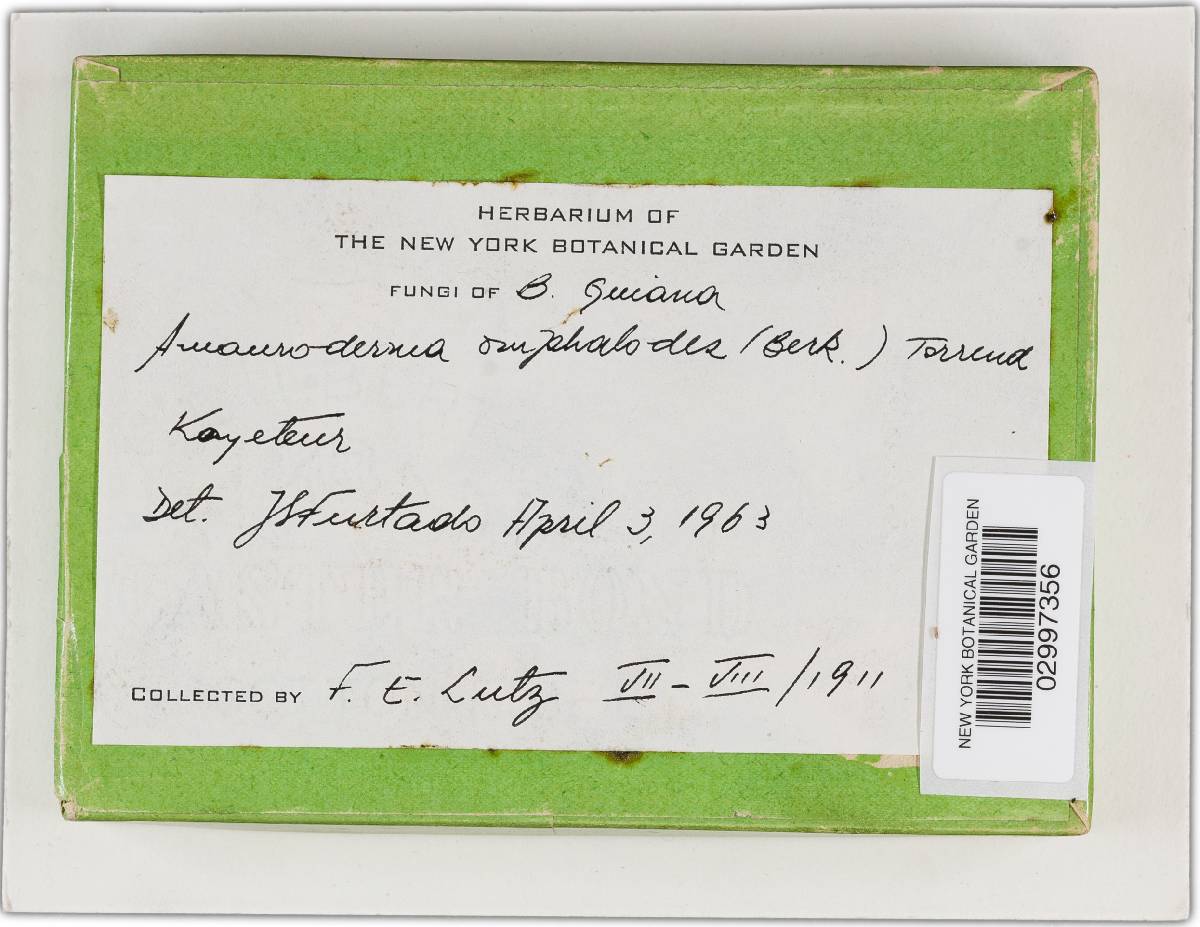 HERBARIUM OF
THE NEW YORK BOTANICAL GARDEN
FUNGI OF B. Guiana
Amauroderma omphalodes (Berk.) Torrend
Kayeteur
Det. JSFurtado April 3, 1963
COLLECTED BY F. E. Lutz VII - VIII/1911
NEW YORK BOTANICAL GARDEN
02997356